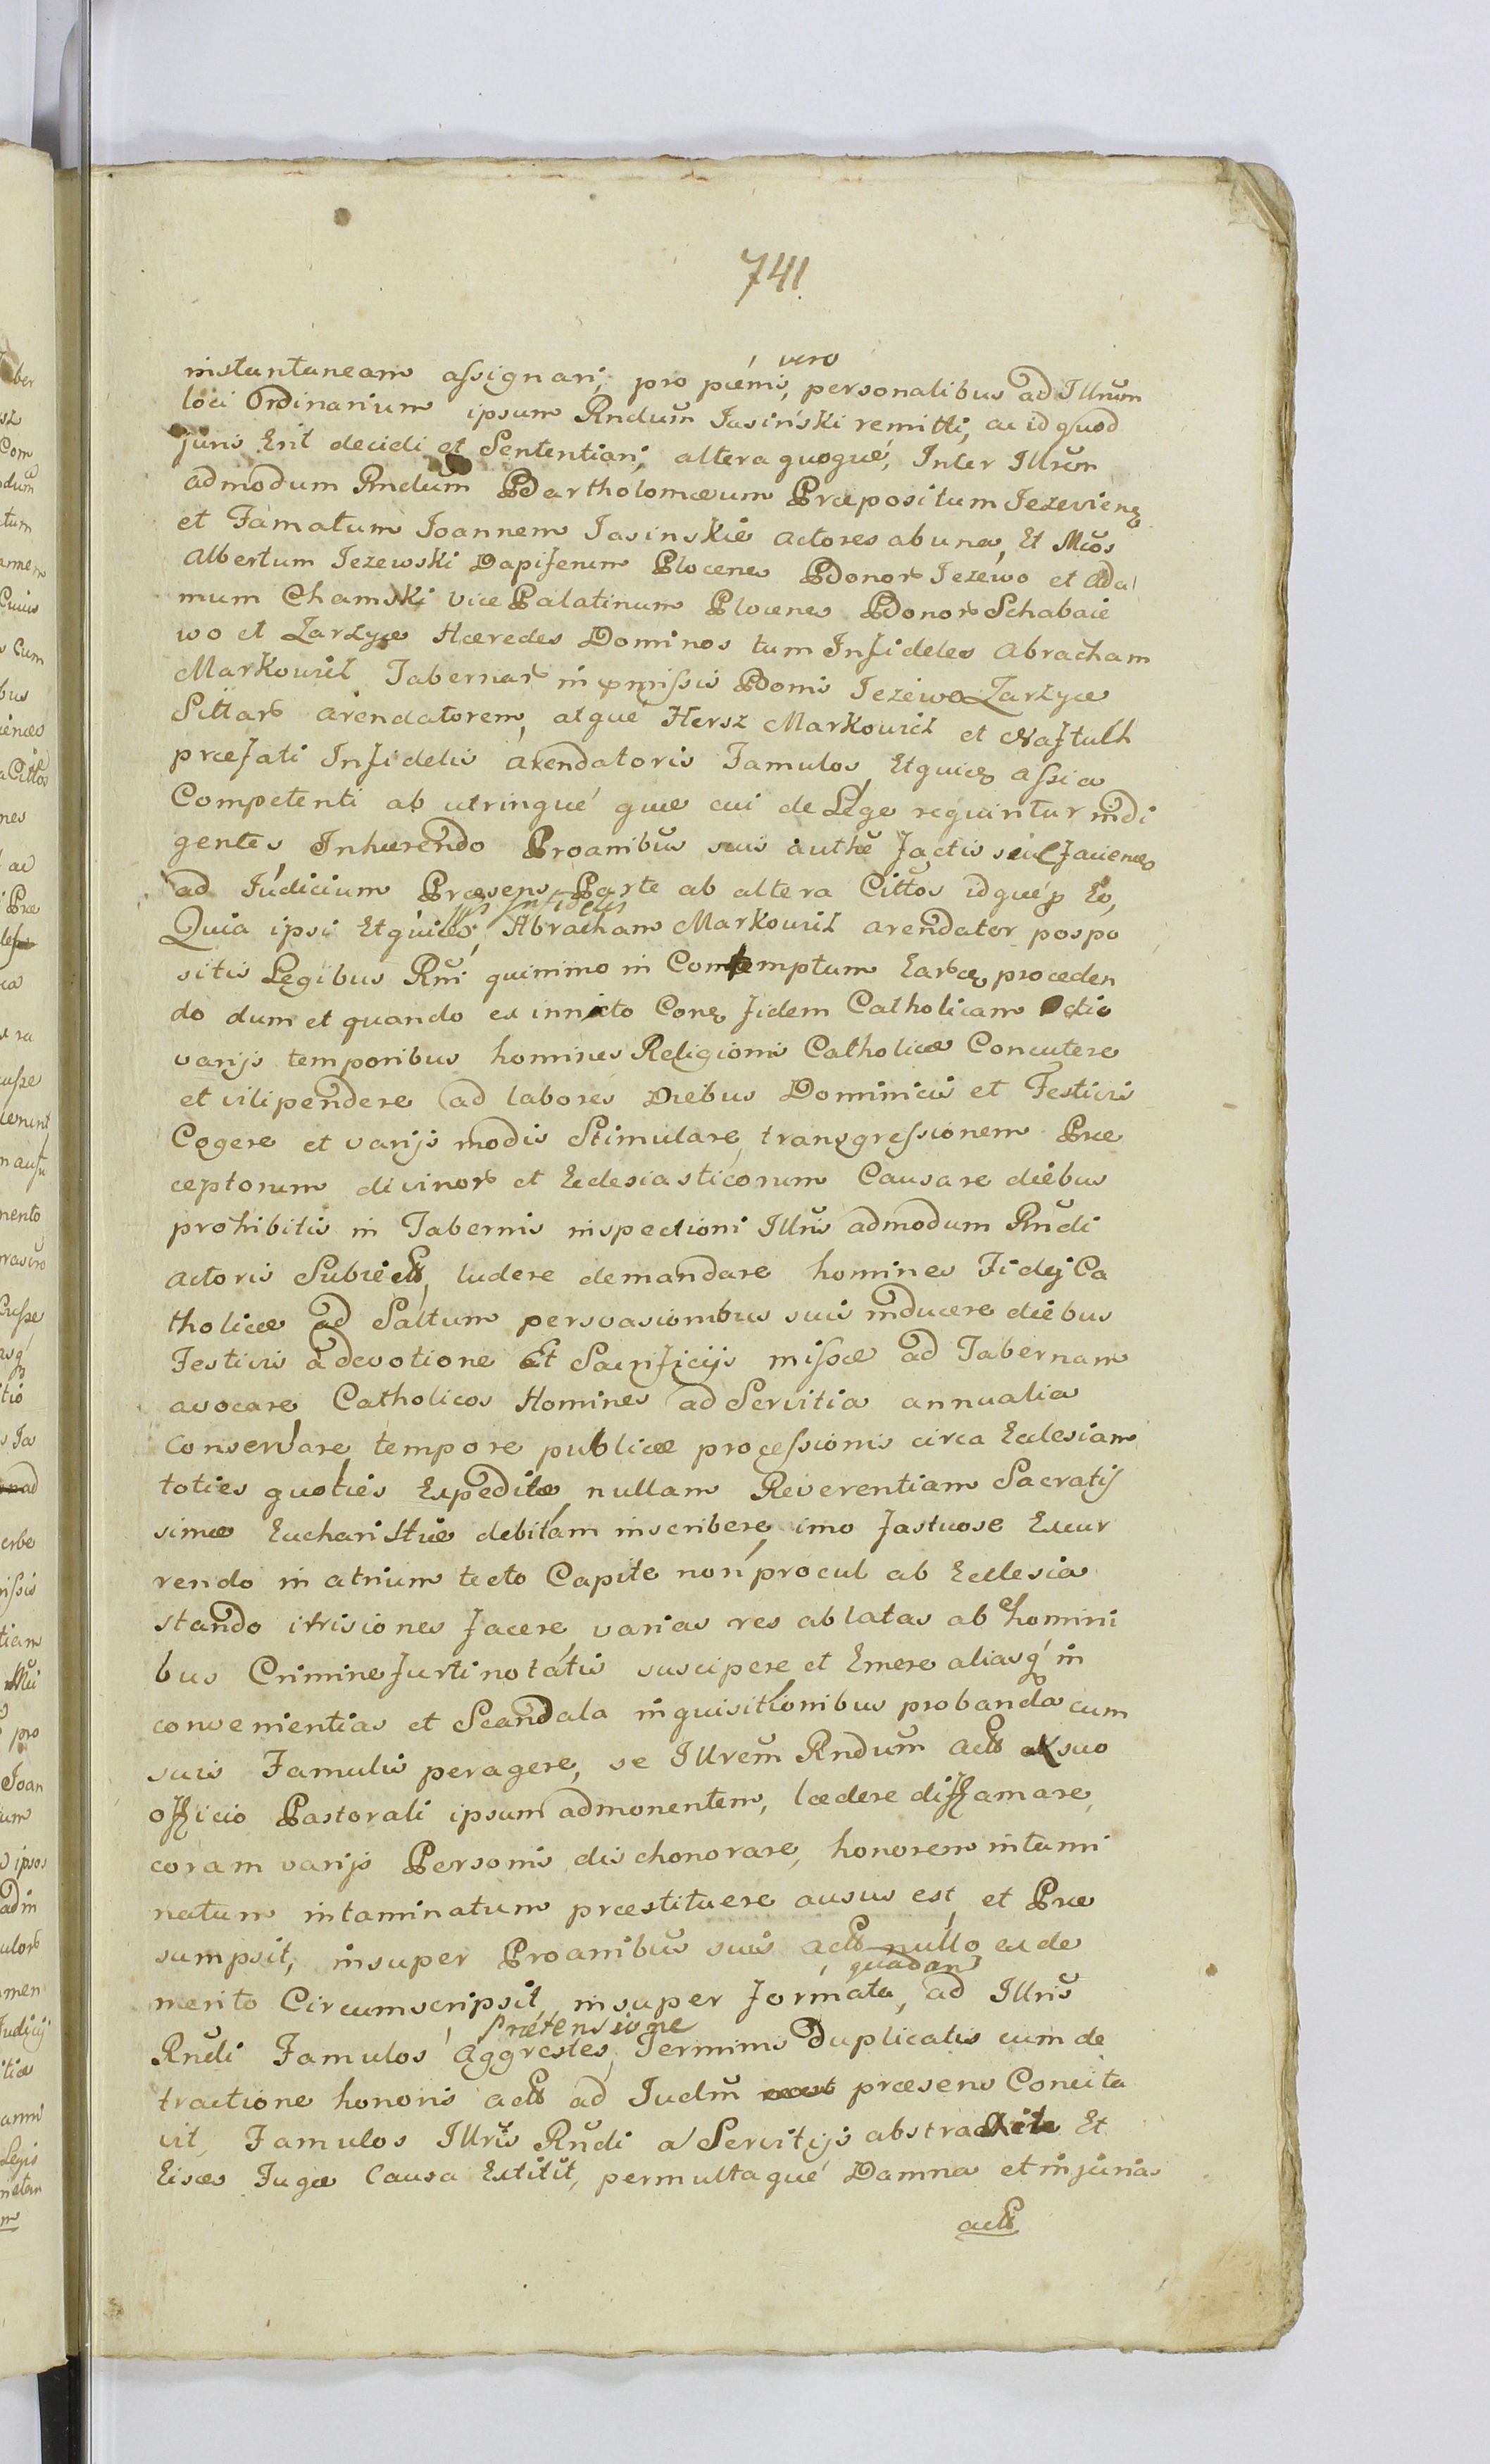 741
instantaneam assignari, pro pœnis, vero personalibus ad Illrūm
loci Ordinarium ipsum Rndūm Jasiński remitti, ac id quod
juris Erit decidi et Sententiari, altera quoque, Inter Illrūm
admodum Rndūm Bartholomæum Præpositum Jezeviens
et Famatum Joannem Jasinskie actores ab una, Et Mcōs
Albertum Jezewski Dapiferum Plocenes Bonor Jezewo et Ada
mum Chamski Vice Palatinum Plocenes Bonor Schabaie
wo et Zarzyce Hæredes Dominos tum Infideles Abracham
Markowicz Tabernar in pmissis Bonis Jezewo Zarzyce
Sittar arendatorem, atque Hersz Markowicz et Naftulh
præfati Infidelis arendatoris Famulos, Etquies assia
Competenti ab utrinque quæ cui de Lege requiritur indi
gentes, Inhærendo Proanibūs suis authē factis seu faciens
ad Judicium Præsens Parte ab altera Cittos idque p Eo,
Quia ipsi Etquies, Ipse Infidelis Abracham Markowicz arendator pospo
sitis Legibus Rni quinimo in Contemptum Earūm proceden
do dum et quando ex innato Conq fidem Catholicam Odio
varijs temporibus homines Religionis Catholicæ Concutere
et vilipendere ad labores Diebus Dominicis et Festivis
Cogere et varijs modis Stimulare, transgressionem Præ
ceptorum divinor et Ecclesiasticorum Causare diebus
prohibitis in Tabernis inspectioni Illris admodum Rndi
actoris Subiectis, ludere demandare homines Fidej Ca
tholicæ ad Saltum persvasionibus suis inducere diebus
Festivis a devotione Et Sacrificijs missæ ad Tabernam
avocare, Catholicos Homines ad Servitia annualia
conservare, tempore publicæ processionis circa Ecclesiam
toties quoties Expeditæ, nullam Reverentiam Sacratis
simæ Eucharistiæ debitam inscribere, imo fastuose Excur
rendo in atrium tecto Capite non procul ab Ecclesia
stando irrisiones facere varias res ablatas ab homini
bus Crimine furti notatis suscipere et Emere aliasq in
convenientias et Scandala inquisitionibus probanda cum
suis Famulis peragere, se Illrem Rndūm actō ex suo
officio Pastorali ipsum admonentem, lædere diffamare,
coram varijs Personis dischonorare, honorem intami
natum intaminatum præstituere ausus est, et Præ
sumpsit, insuper Proanibūs suis actō nullo ex de
merito Circumscripsit, insuper formata, quadam ad Illris
Rndi Famulos Prætensione Aggrestes, Terminis Duplicatis cum de
tractione honoris actō ad Judm præsens Concita
vit, Famulos Illris Rndi a Servitijs abstraxit Et
Eisdes Fugæ Causa Extitit, permultaque Damna et injurias
actō